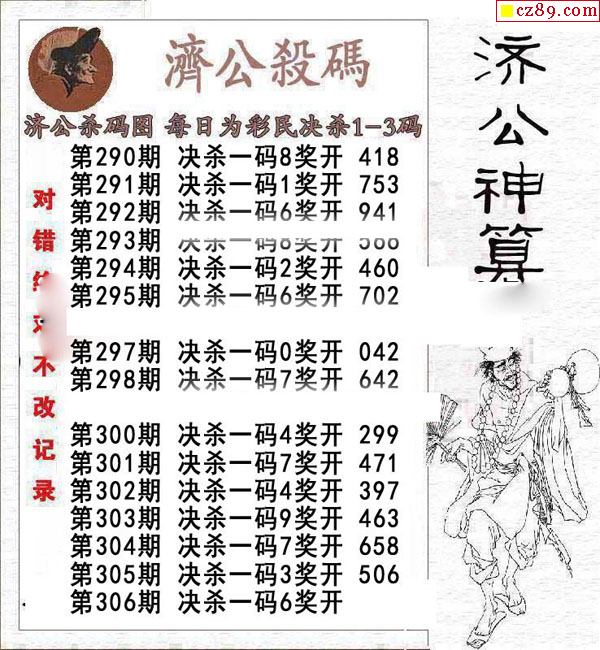 cz89.com
濟公殺碼
济公杀码图 每日为彩民决杀1-3码
第290期 决杀一码8奖开 418
第291期 决杀一码1奖开 753
第292期 决杀一码6奖开 941
第293期 决杀一码8奖开
第294期 决杀一码2奖开 460
第295期 决杀一码6奖开 702
第297期 决杀一码0奖开 042
第298期 决杀一码7奖开 642
第300期 决杀一码4奖开 299
第301期 决杀一码7奖开 471
第302期 决杀一码4奖开 397
第303期 决杀一码9奖开 463
第304期 决杀一码7奖开 658
第305期 决杀一码3奖开 506
第306期 决杀一码6奖开
对错不改记录
济公神算